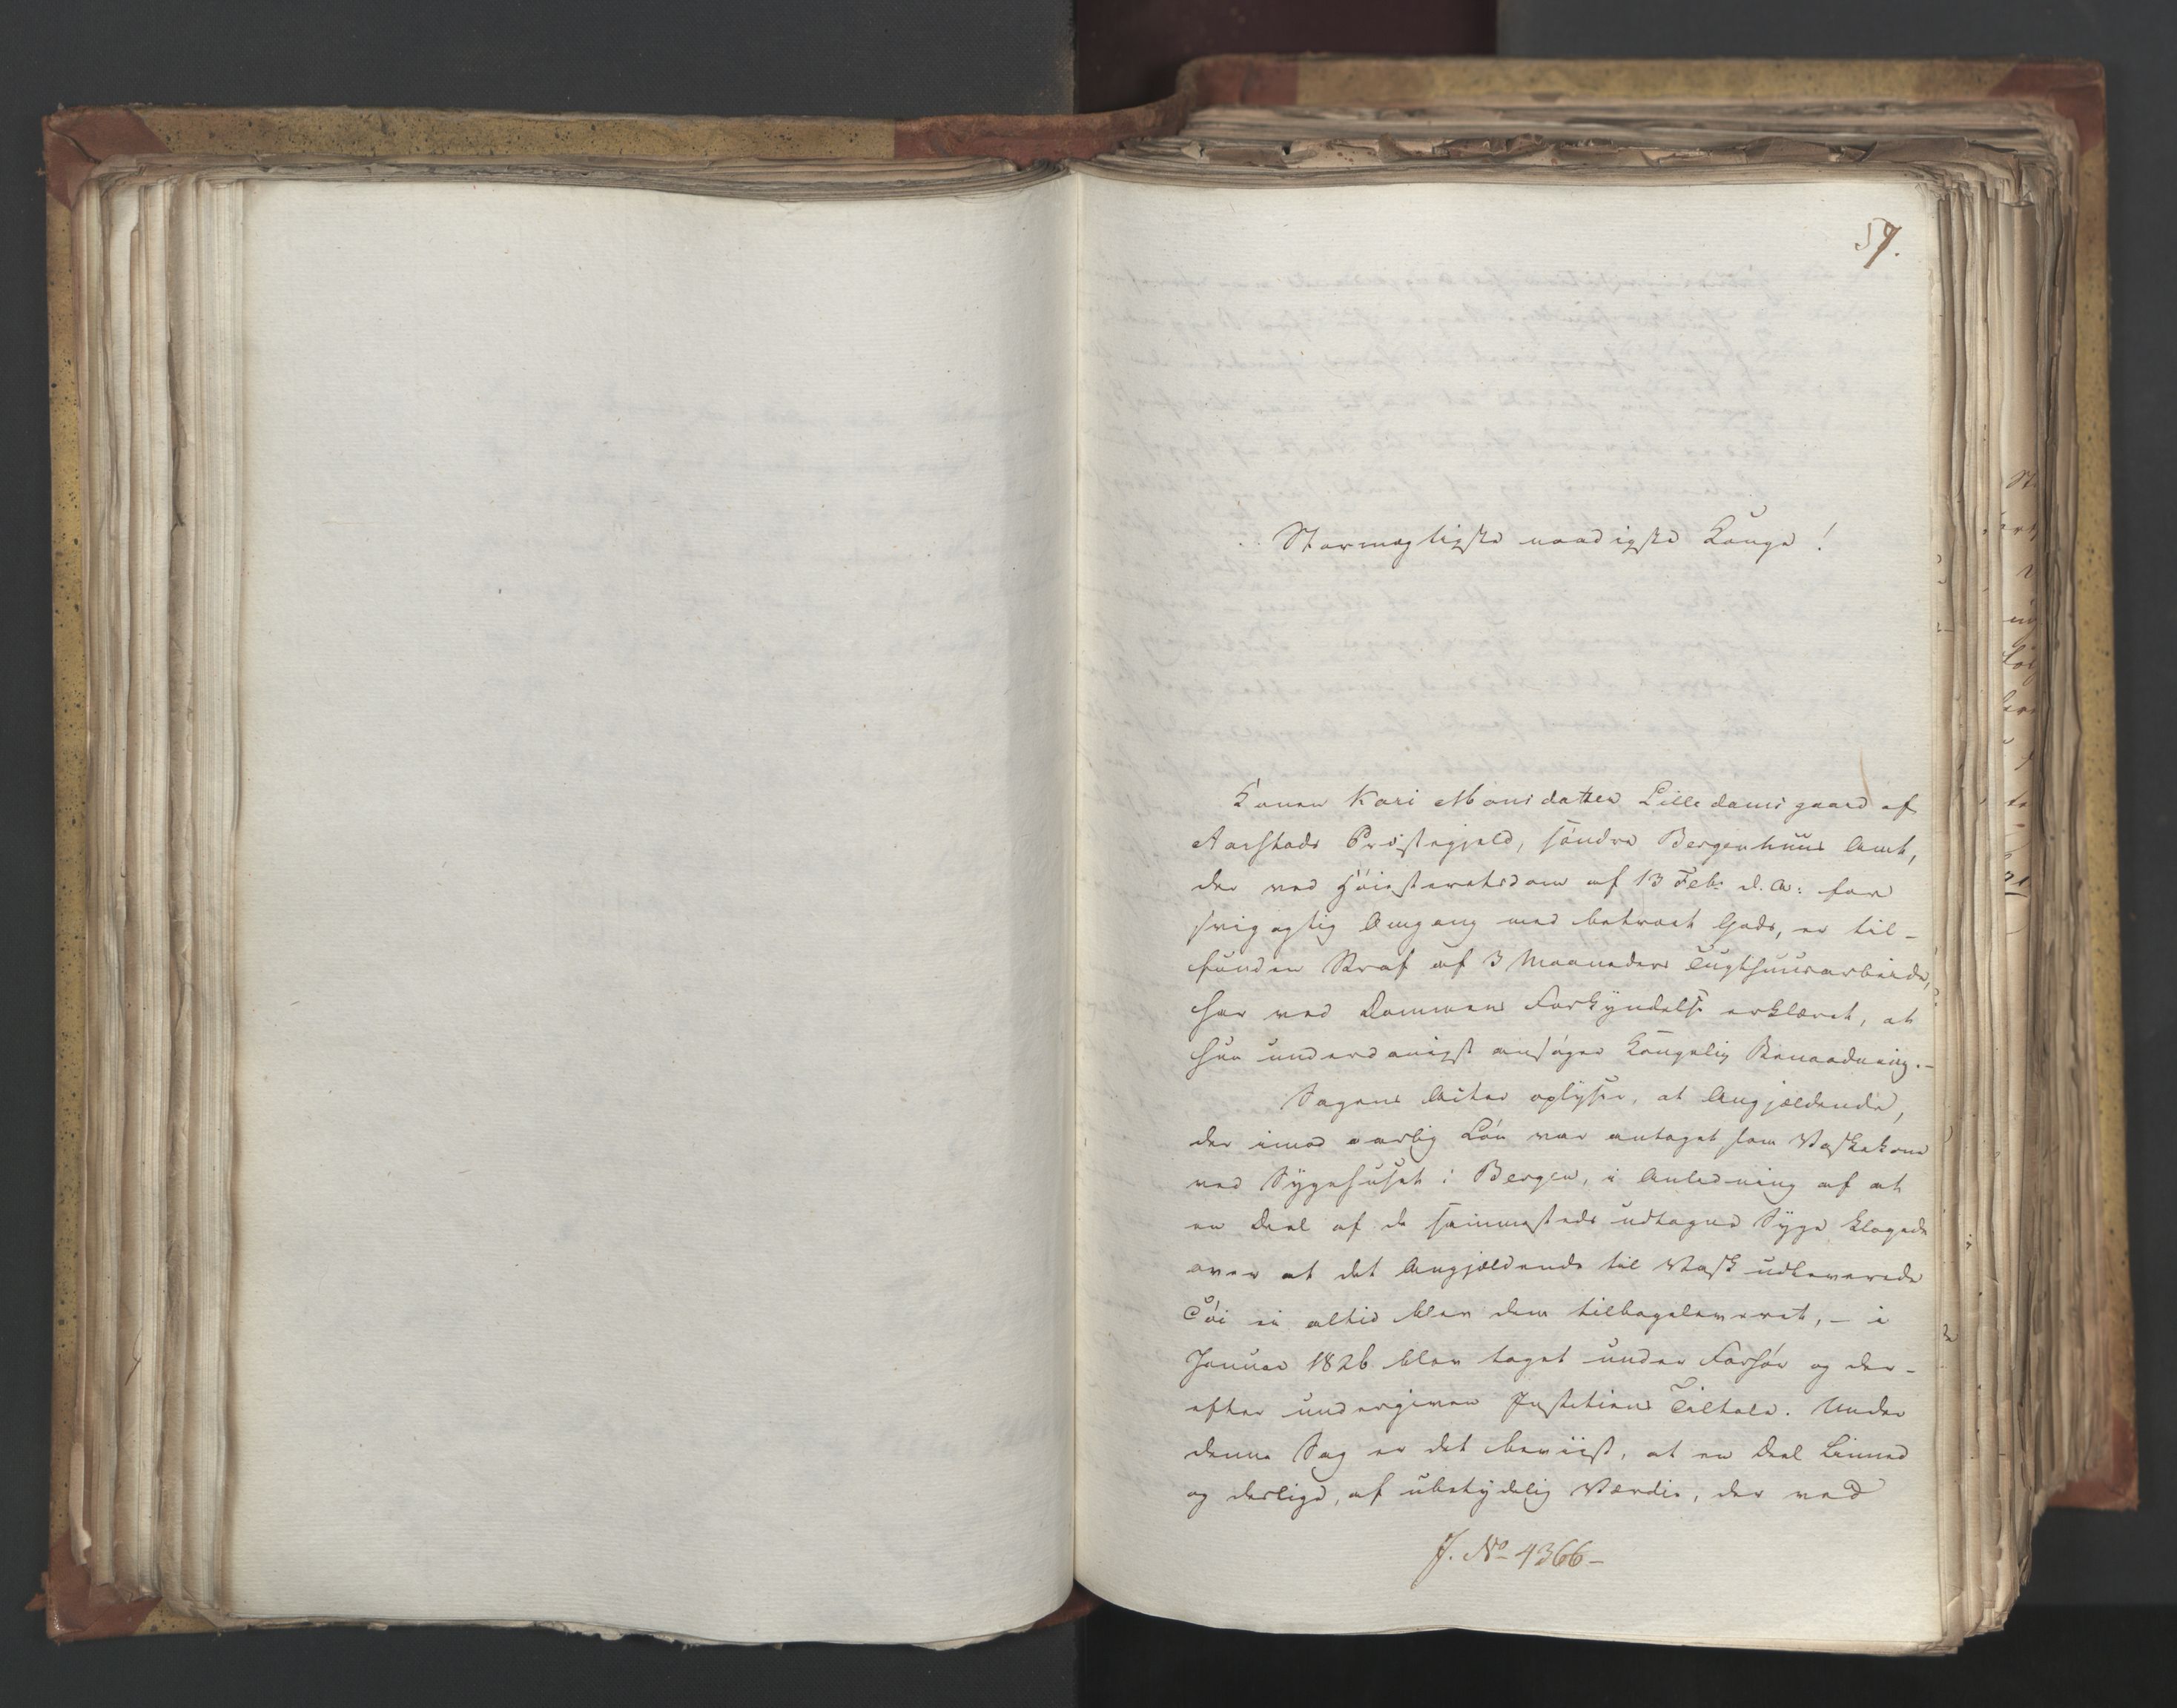 59.
Stormægtigste naadigste Konge!
Konen Kari Monsdatter Lille damsgaard af
Aarstads Præstegjeld, søndre Bergenhuus Amt,
der ved Høiesteretsdom af 13 Feb: d. A: for
svigagtig Omgang med betroet Gods, er til-
funden Straf af 3 Maaneders Tugthuusarbeide,
har ved Dommens Forkyndelse erklæret, at
hun underdanigst ansøger Kongelig Benaadning.-
Sagens Acter oplyse, at Angjældende,
der imod aarlig Løn var antaget som Vaskekone
ved Sygehuset i Bergen, i Anledning af at
en Deel af de sammesteds udtagne Syge klagede
over at det Angjældende til Vask udleverede
Tøi ei altid blev dem tilbageleveret, - i
Januar 1826 blev taget under Forhør og der-
efter undergiven Justitiens Tiltale. Under
denne Sag er det beviist, at en Deel Linned
og desligt, af ubetydelig Værdie, der ved
J. No 4366-